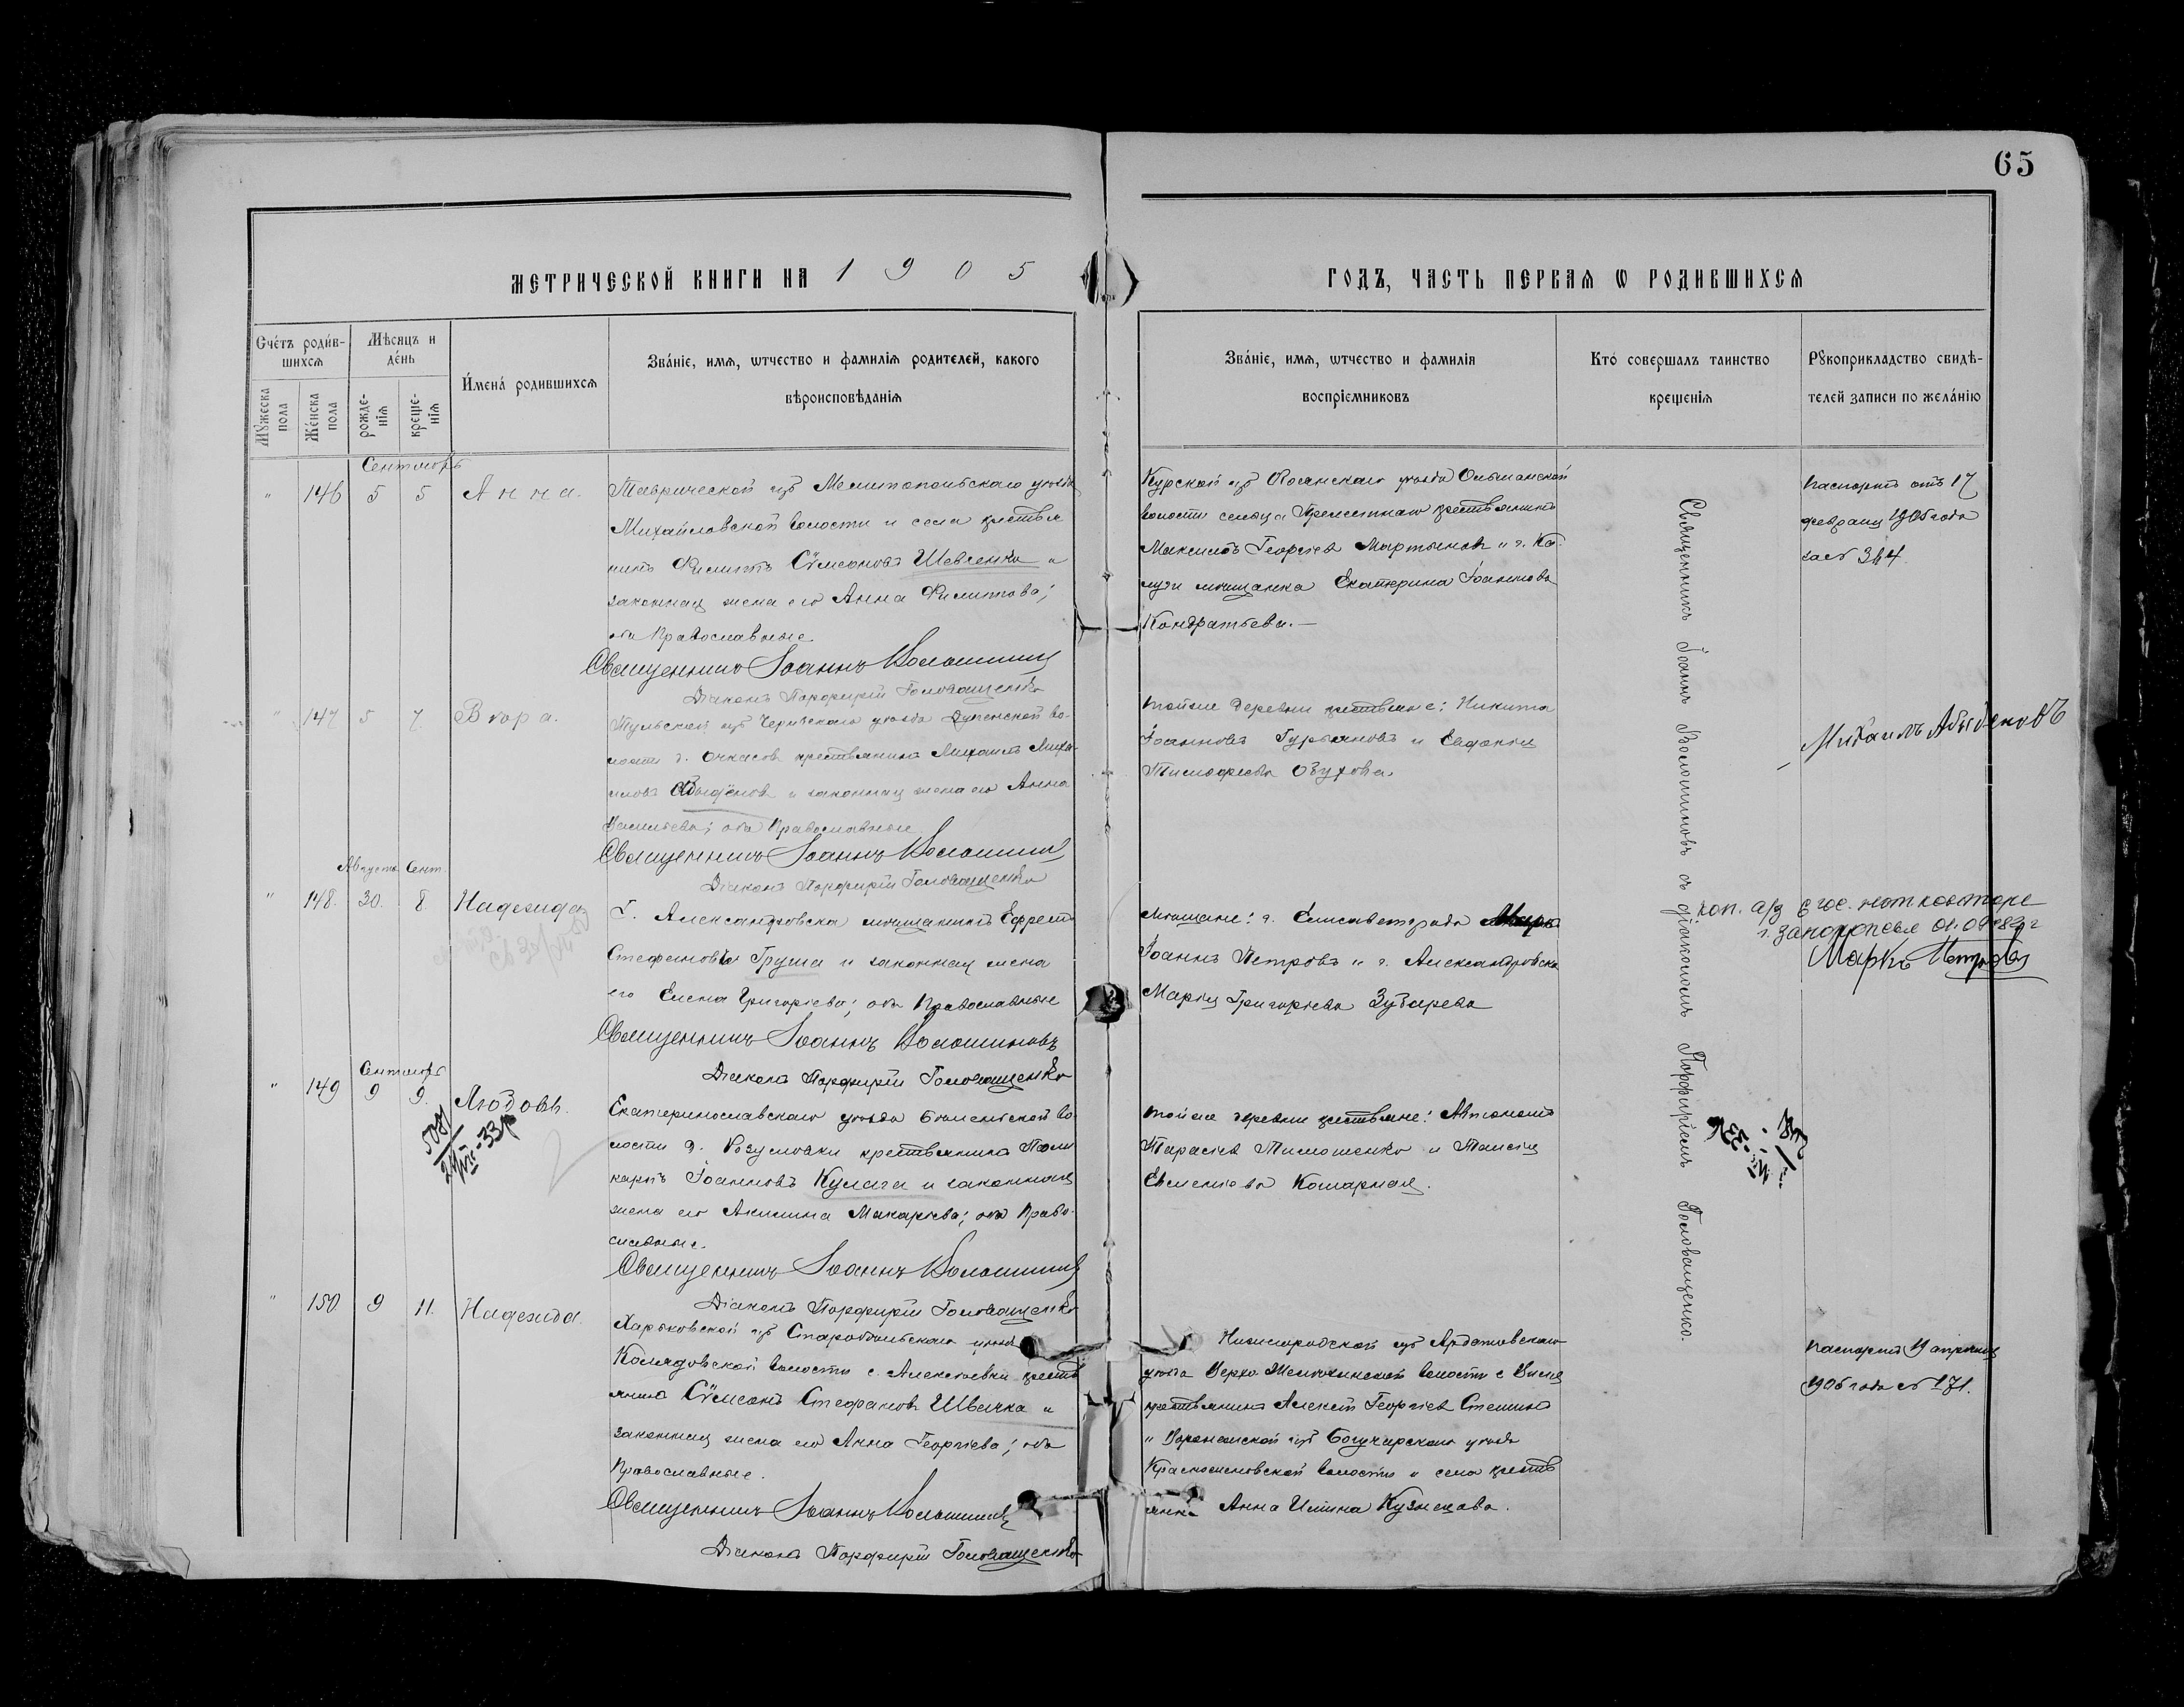 65
МЕТРИЧЕСКОЙ КНИГИ НА 1905
ГОДЪ, ЧАСТЬ ПЕРВАЯ Ѡ РОДИВШИХСЯ
Счетъ родив-
шихся
Мѣсяцъ и
день
Имена родившихся
Званіе, имя, ѡтчество и фамилія родителей, какого
вѣроисповѣданія
Мꙋжеска пола
Женска пола
рожде-
нія
креще-
нія
Званіе, имя, ѡтчество и фамилія
воспріемниковъ
Кто совершалъ таинство
крещенія
Рꙋкоприкладство свидѣ-
телей записи по желанію
Сентябрь
" 146 5 5 Анна.
Таврической губ Мелитопольскаго уѣзда
Михайловской волости и села крестья
нинъ Филиппъ Сѵмеоновъ Шевченко и
законная жена его Анна Филиппова;
оба Православные.
Священникъ Іоаннъ Волошиновъ
Діаконъ Порфирій Головащенко
Курской губ Ольшанской
волости сельца крестьянинъ
Максимъ Георгіевъ Мартыновъ и г. Ка-
луги мѣщанка Екатерина Іоаннова
Кондратьева.—
Паспортъ отъ 17
февраля 1905 года
за № 344.
" 147 5 7. Вѣра.
Тульской губ Чернскаго уѣзда во-
лости д. крестьянинъ Михаилъ Миха-
иловъ Абыденовъ и законная жена его Анна
Васильева; оба Православные
Священникъ Іоаннъ Волошиновъ
Діаконъ Порфирій Головащенко
тойже деревни крестьяне: Никита
Іоанновъ Гурьяновъ и Евдокія
Тимофеева Обухова.
Михаилъ Абыденовъ
Августа Сент.
" 148. 30. 8. Надежда
Г. Александровска мѣщанинъ Ефремъ
Стефановъ Груша и законная жена
его Елена Григорьева; оба Православные
Священникъ Іоаннъ Волошиновъ
Діаконъ Порфирій Головащенко
Мѣщане: г. Елисаветграда
Іоаннъ Петровъ и г. Александровска
Марія Григорьева Зубарева
коп. а/з в гос. нот конторе
г. Запорожья
Маркъ Петровъ
Сентябрь
" 149 9 9. Любовь.
Екатеринославскаго уѣзда во-
лости д. Розумовки крестьянинъ Поли
карпъ Іоанновъ Кулага и законная
жена его Акилина Макарьева; оба Право-
славные.
Священникъ Іоаннъ Волошиновъ
Діаконъ Порфирій Головащенко
тойже деревни крестьяне: Автономъ
Тарасіевъ Тимошенко и Таисія
Евменіева Кошарная.
" 150. 9 11. Надежда.
Харьковской губ Старобѣльскаго уѣзда
Колядовской волости с. Алексѣевки кресть
янинъ Сѵмеонъ Стефановъ Швачка и
законная жена его Анна Георгіева; оба
Православные.
Священникъ Іоаннъ Волошиновъ
Діаконъ Порфирій Головащенко
Нижегородской губ Ардатовскаго
уѣзда волости с
крестьянинъ Алексѣй Георгіевъ
и Воронежской губ Богучарскаго уѣзда
волости и села кресть
янка Анна Ильина Кузнецова.
Паспортъ 19 апрѣля
1905 года № 171.
Священникъ Іоаннъ Волошиновъ съ діакономъ Порфиріемъ Головащенко.